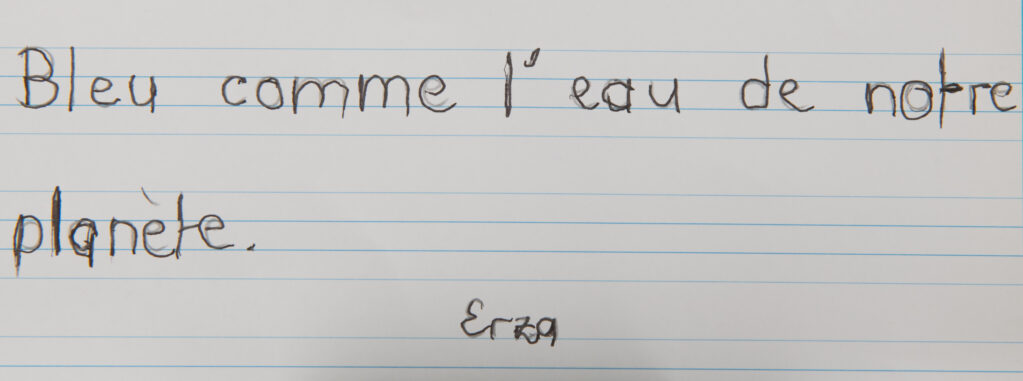 Bleu comme l'eau de notre
planète.
Erza